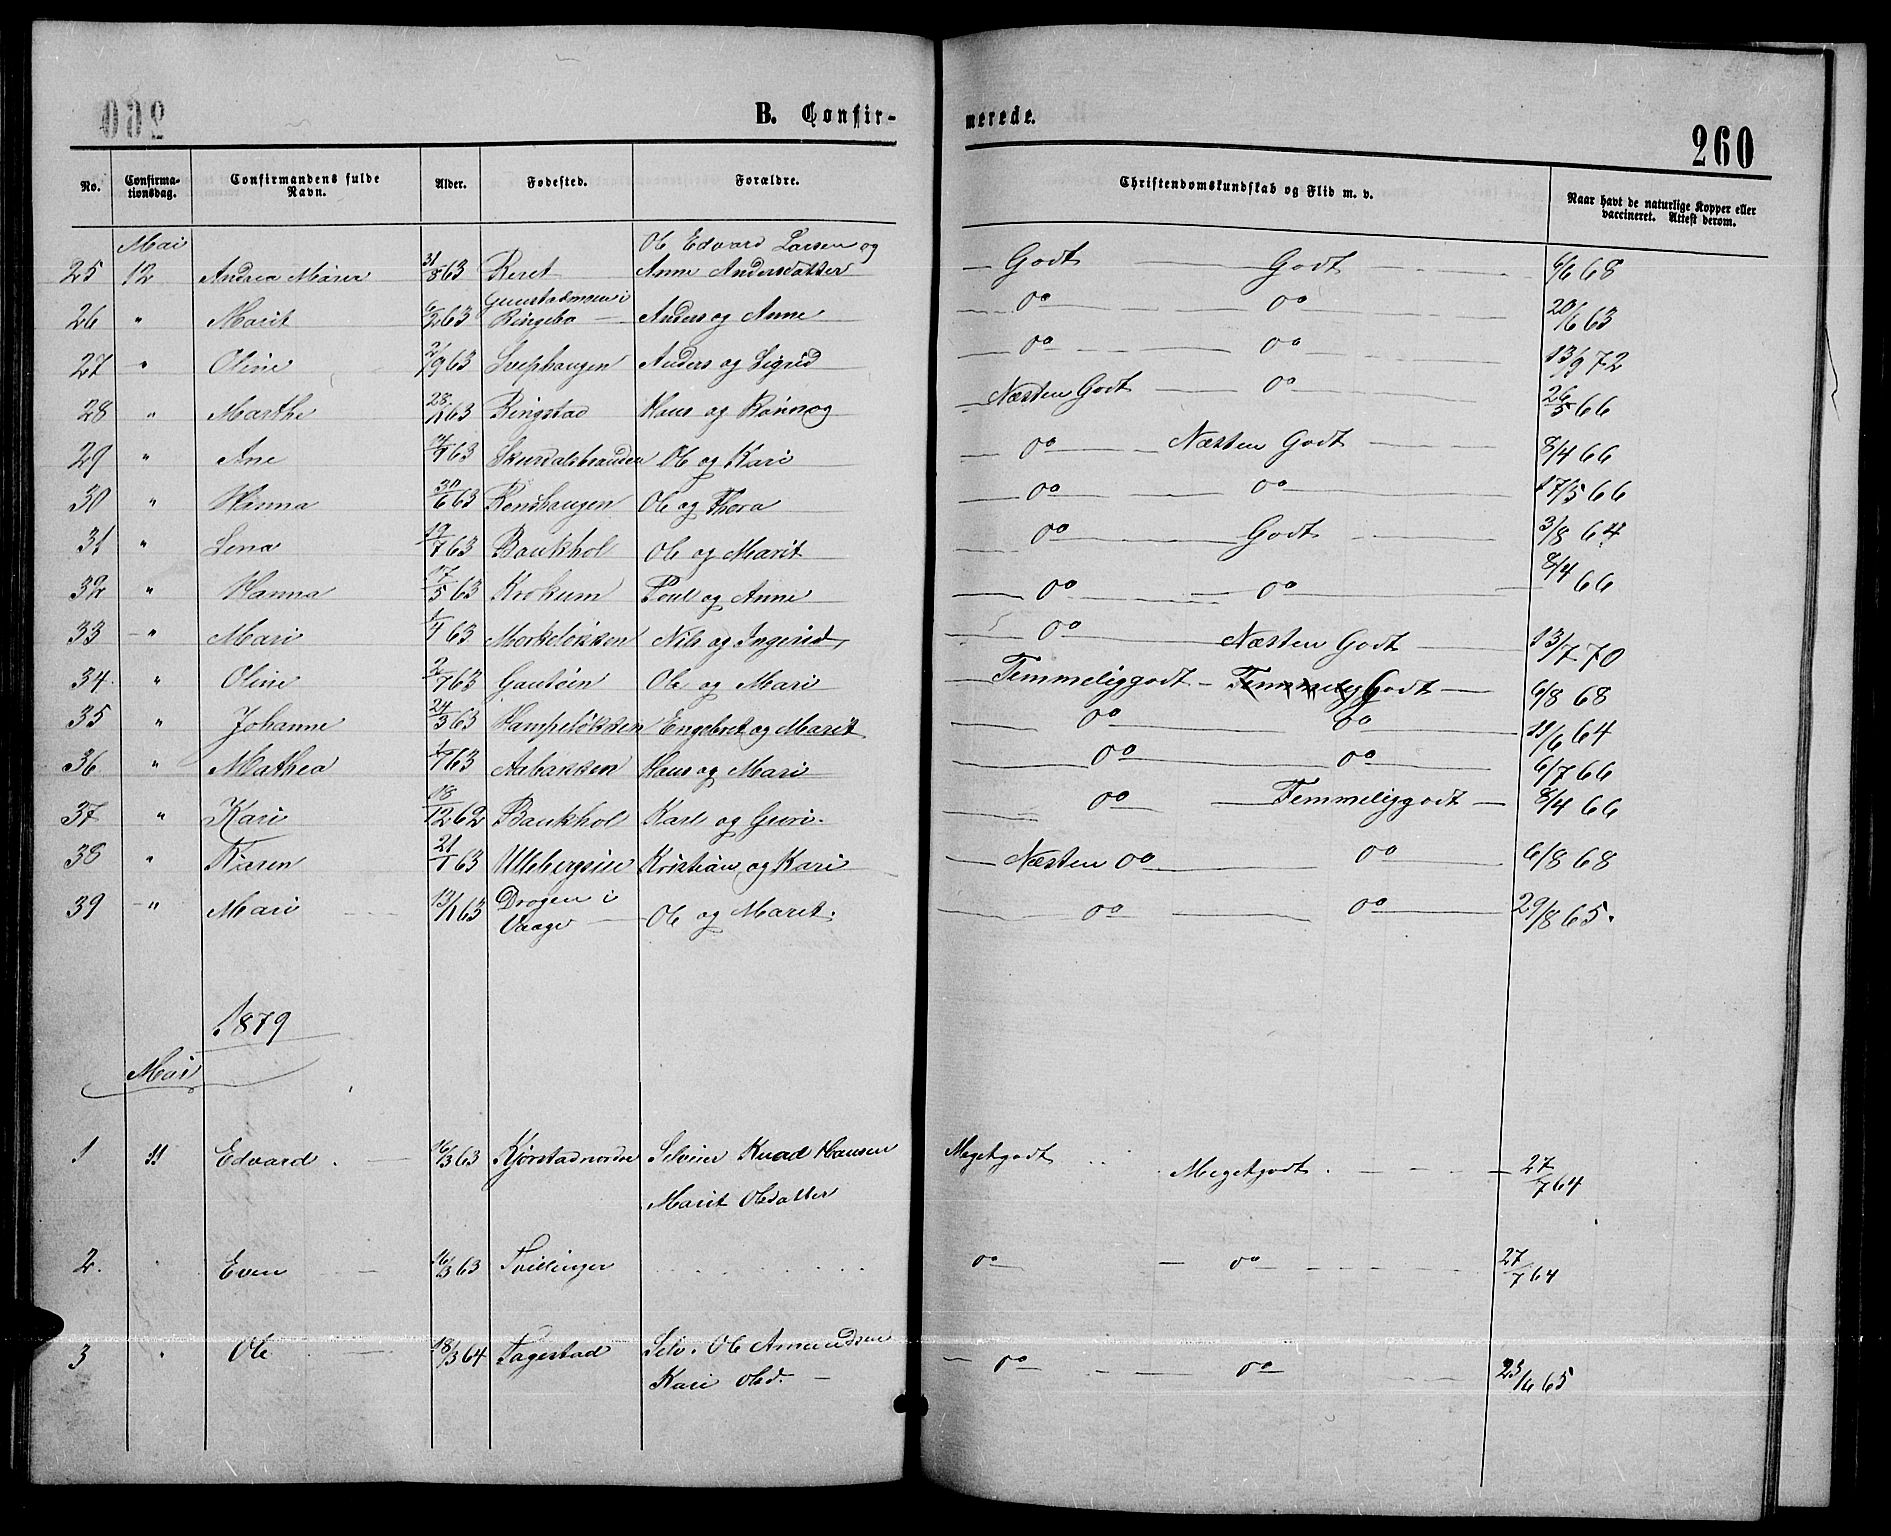 B. Confir-
merede.
260
No.
Confirma-
tionsdag.
Confirmandens fulde
Navn.
Alder.
Fødested.
Forældre.
Christendomskundskab og Flid m. v.
Naar havt de naturlige Kopper eller
vaccineret. Attest derom.
Mai Ole Edvard Larsen og
25 12 Andrea Marie 31/8 63 Anne Andersdatter — Godt — Godt 6/6 68
26 " Marit 6/2 63 Ringebo — Anders og Anne — Do — Do 20/6 63
27 " Oline 2/9 63 Sveiphaugen Anders og Sigrid — Do — Do 13/9 72
28 " Marthe 28/11 63 Ringstad Hans og Rønnog — Næsten Godt — Do 26/5 66
29 " Ane 63 Skurdalsbranden Ole og Kari — Do — Næsten Godt 8/4 66
30 " Hanna 30/6 63 Ole og Thora — Do — Do 17/5 66
31 " Lena 19/7 63 Baukhol Ole og Marit — Do — Godt 3/8 64
32 " Hanna 17/5 63 Krokum Poul og Anne — Do — Do 8/4 66
33 " Mari 63 Morkeløkken Nils og Ingerid — Do — Næsten Godt 13/7 70
34 " Oline 2/7 63 Gautøin Ole og Mari — Temmeliggodt — Temmelig Godt — 6/8 68
35 " Johanne 24/3 63 Hampeløkken Engebret og Marit — Do — Do 11/6 64
36 " Mathea 63 Aabakken Hans og Mari — Do — Do 6/7 66
37 " Kari 18/12 62 Baukhol Karl og Guri. — Do — Temmeliggodt — 8/4 66
38 " Karen 21/1 63 Ullebergsie Kristian og Kari — Næsten Do — Do 6/8 68
39 " Mari 13/1 63 Drogen i
Vaage — Ole og Marit. — Do — Do 29/8 65.
1879
Mai
1 11 Edvard. 16/3 63 Kjørstad nordre Selveier Knud Hansen Megetgodt Megetgodt 27/7 64
Marit Olsdatter
2. " Even 16/3 63 Tvillinger Do — Do 27/7 64
3 " Ole 18/3 64 Fagestad Selv. Ole Amundsen — Do — Do 23/6 65
Kari Olsd. —